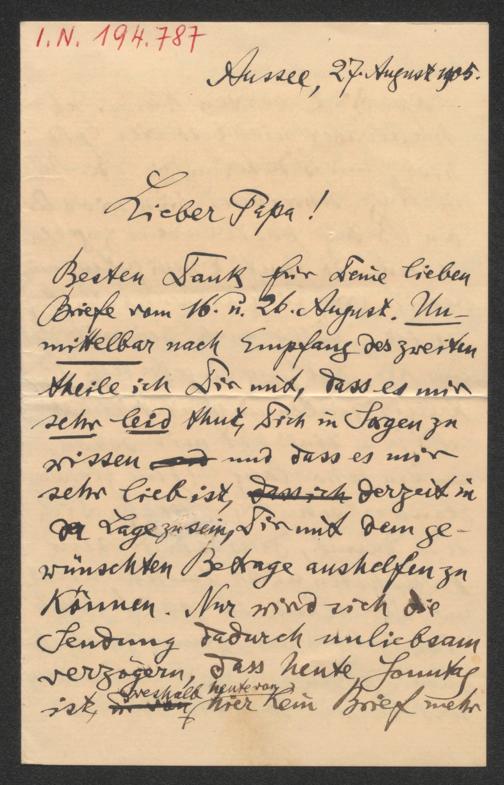 I.N. 194.787
Aussee, 27. August 1905.
Lieber Papa!
Besten Dank für Deine lieben
Briefe vom 16. u. 26. August. Un-
mittelbar nach Empfang des zweiten
theile ich Dir mit, dass es mir
sehr leid thut, Dich in Sorgen zu
wissen und und dass es mir
sehr lieb ist, dass ich derzeit in
der Lage zu sein, Dir mit dem ge-
wünschten Betrage aushelfen zu
können. Nur wird sich die
Sendung dadurch unliebsam
verzögern, dass heute Sonntag
weshalb heute von
ist, hier kein Brief mehr